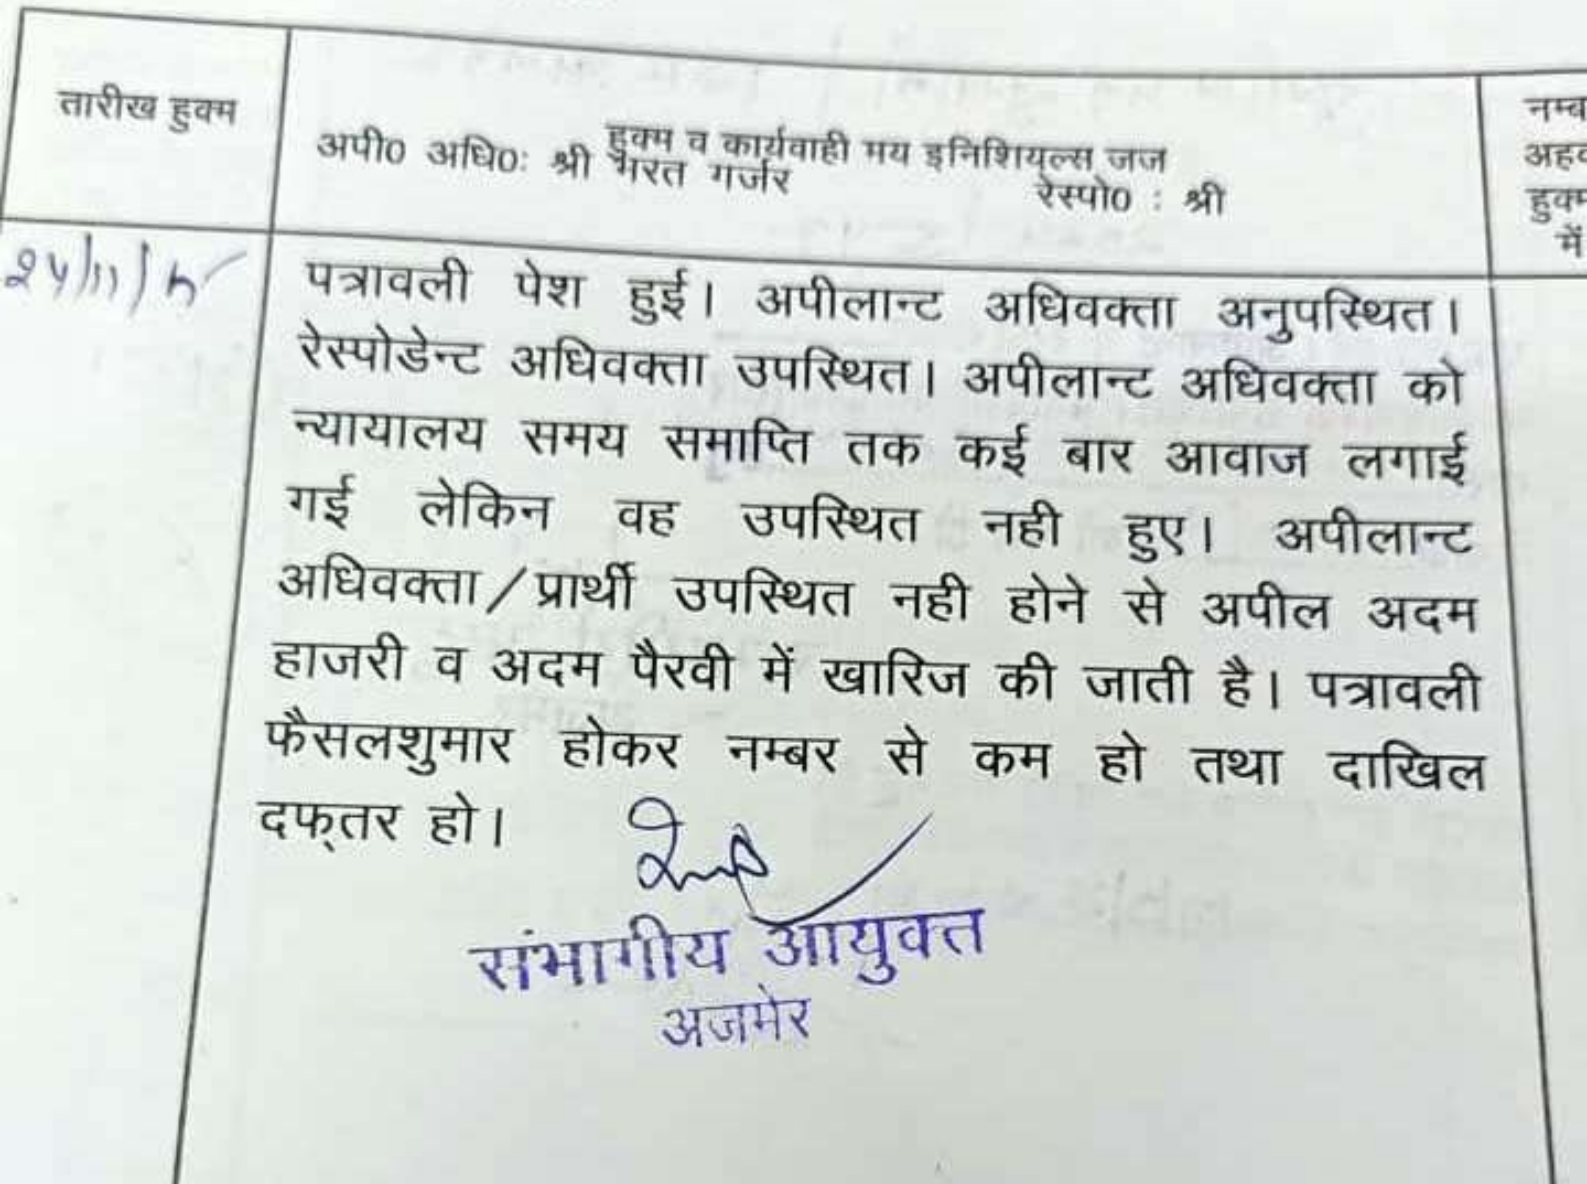 तारीख हुक्म
हुक्म व कार्यवाही मय इनिशियल्स जज
अपी0 अधि0: श्री भरत गर्जर रेस्पो0 : श्री
नम्ब
अहव
हुक्म
में
पत्रावली पेश हुई। अपीलान्ट अधिवक्ता अनुपस्थित।
रेस्पोडेन्ट अधिवक्ता उपस्थित। अपीलान्ट अधिवक्ता को
न्यायालय समय समाप्ति तक कई बार आवाज लगाई
गई लेकिन वह उपस्थित नही हुए। अपीलान्ट
अधिवक्ता/प्रार्थी उपस्थित नही होने से अपील अदम
हाजरी व अदम पैरवी में खारिज की जाती है। पत्रावली
फैसलशुमार होकर नम्बर से कम हो तथा दाखिल
दफ्तर हो।
संभागीय आयुक्त
अजमेर